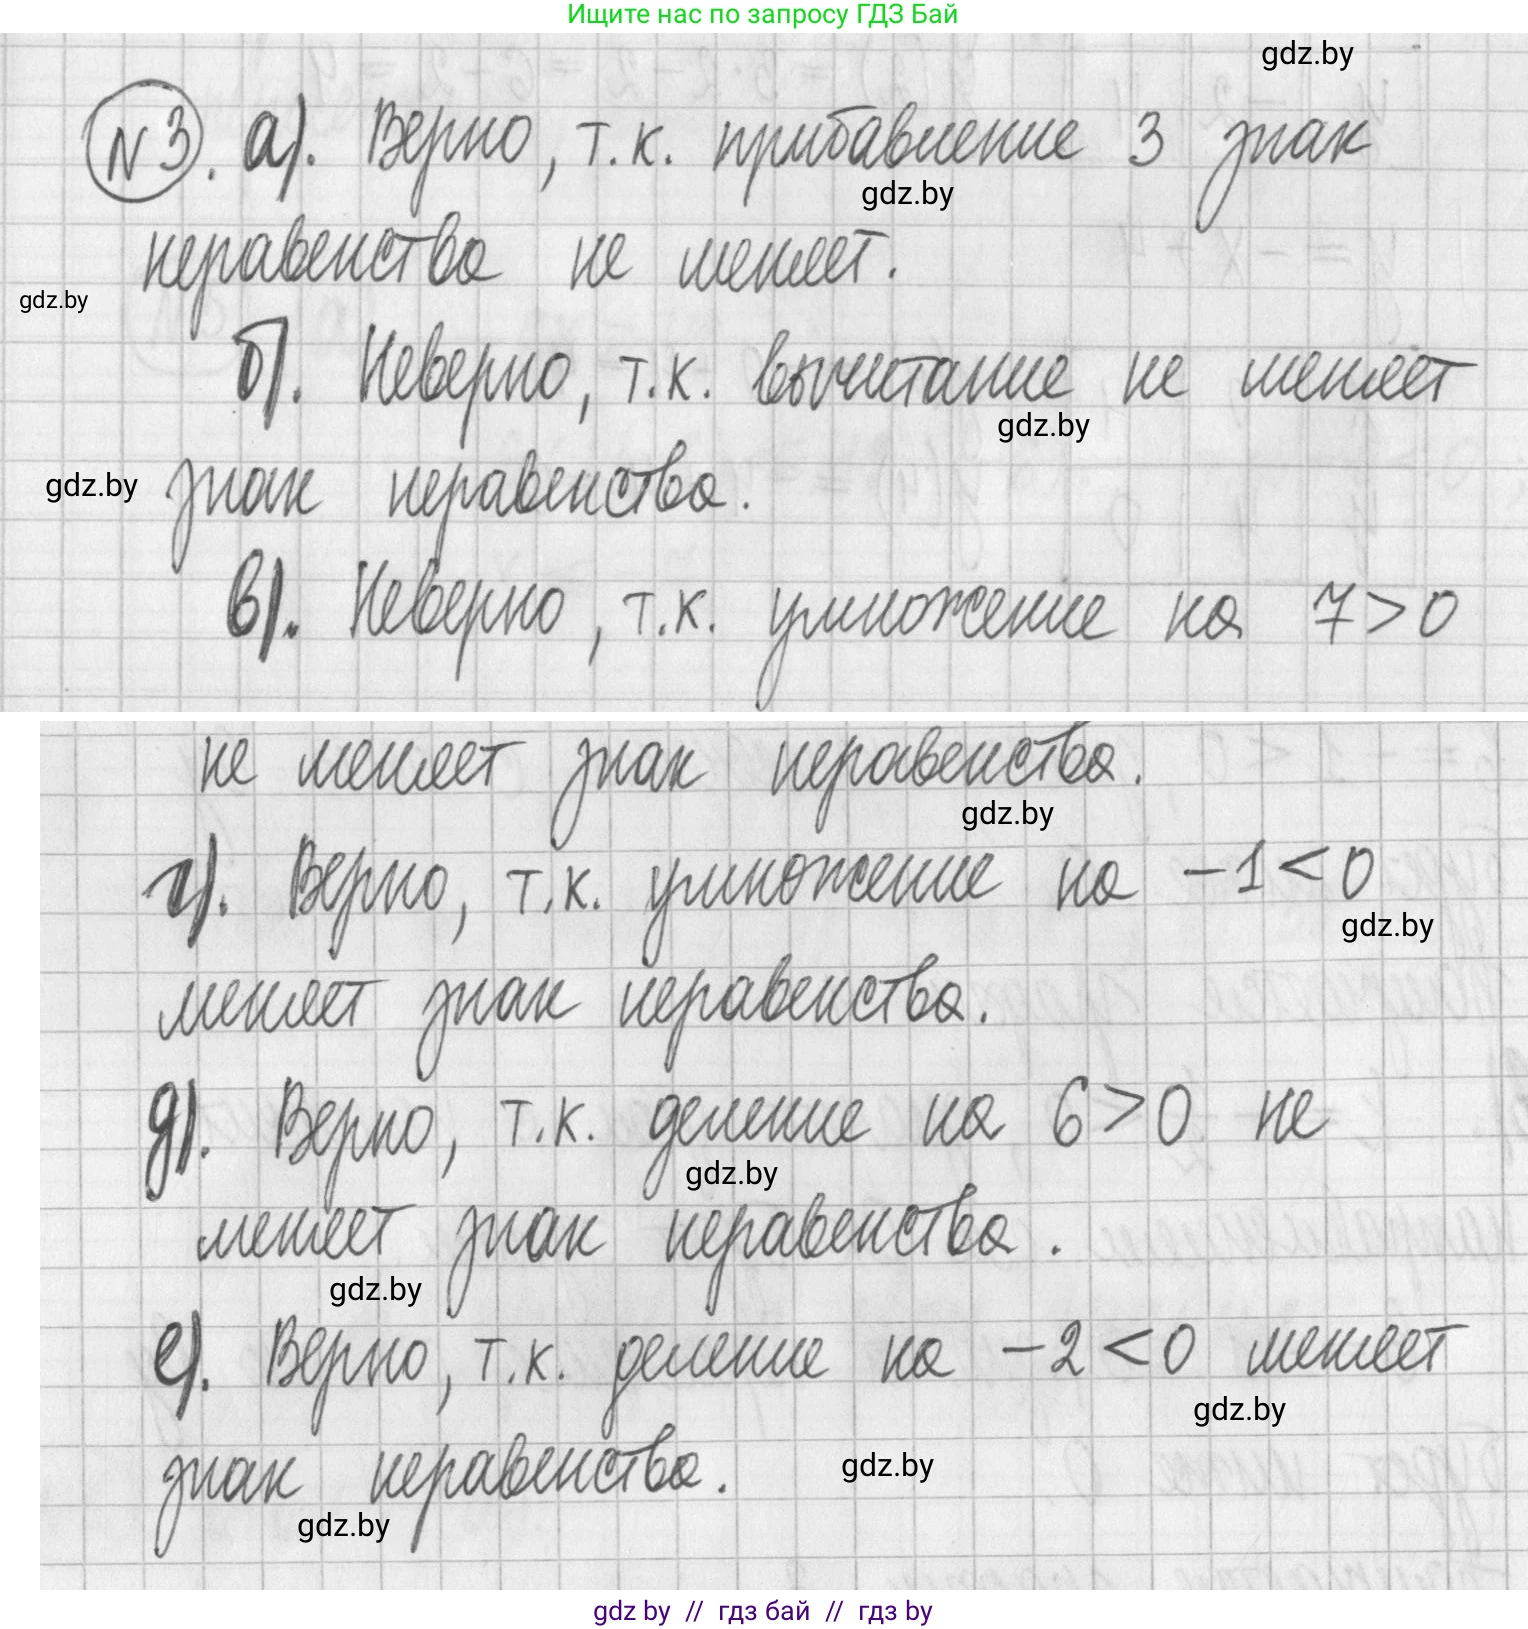 Ищите нас по запросу ГДЗ Бай
gdz.by
№3. а). Верно, т.к. прибавление 3 знак
gdz.by
неравенства не меняет.
gdz.by
б). Неверно, т.к. вычитание не меняет
gdz.by
знак неравенства.
gdz.by
в). Неверно, т.к. умножение на 7>0
не меняет знак неравенства.
gdz.by
г). Верно, т.к. умножение на -1<0
gdz.by
меняет знак неравенства.
д). Верно, т.к. деление на 6>0 не
gdz.by
меняет знак неравенства.
gdz.by
е). Верно, т.к. деление на -2<0 меняет
gdz.by
знак неравенства.
gdz.by
gdz.by
gdz by // гдз бай // гдз by